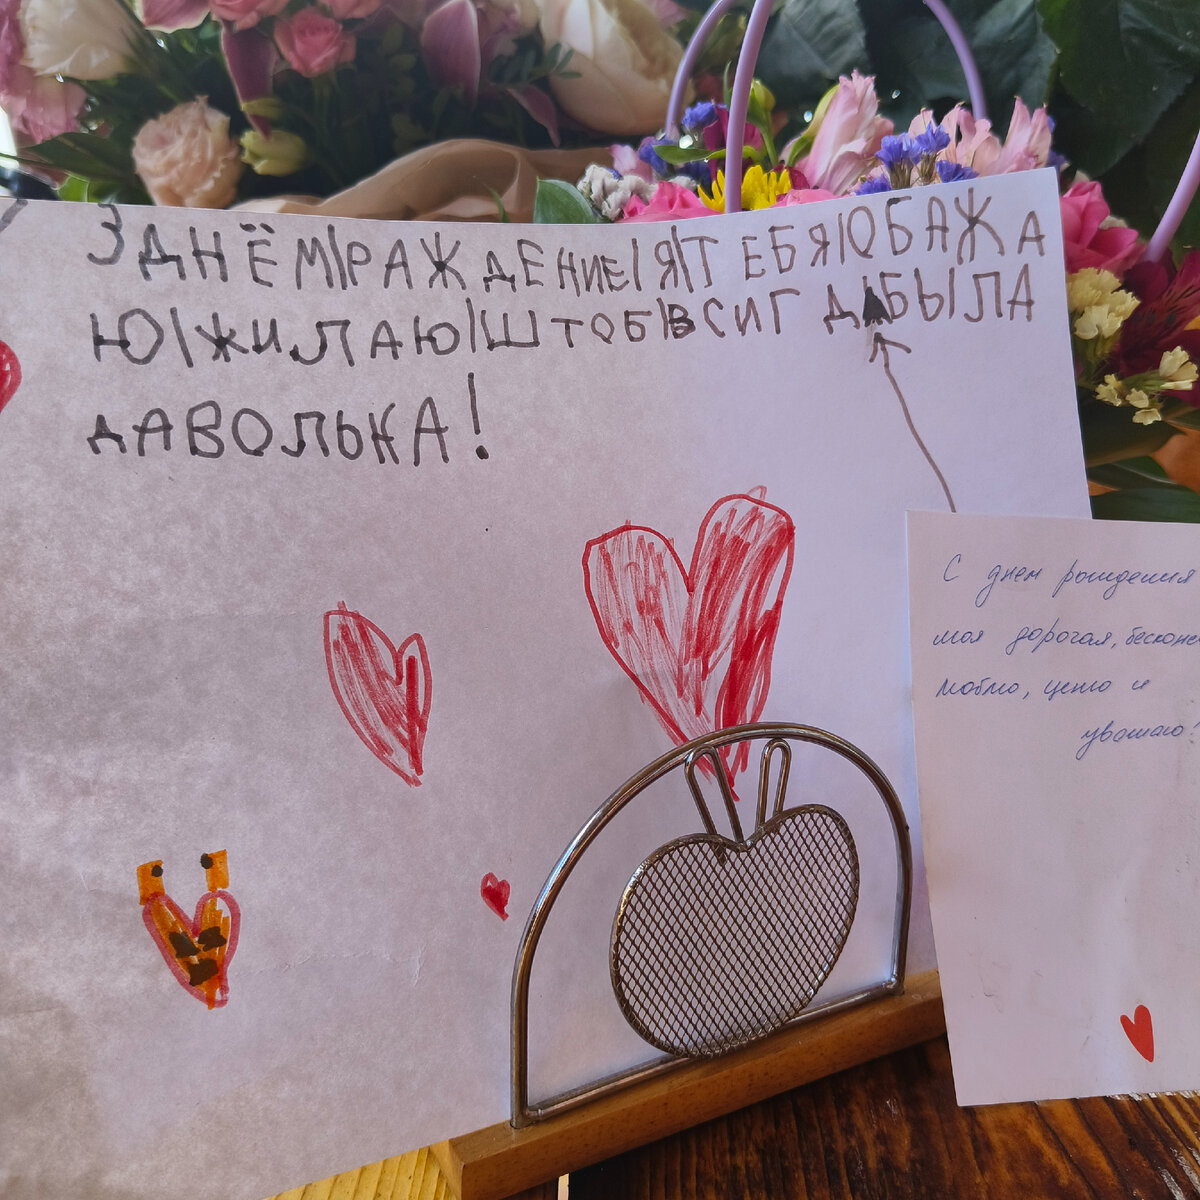 З ДНЁМ|РАЖДЕНИЕ|Я|ТЕБЯ|ОБАЖА
Ю|ЖИЛАЮ|ШТОБ|ВСИГДА|БЫЛА
ДАВОЛЬНА!
С днем рождения
моя дорогая, бесконе
люблю, ценю и
уважаю!